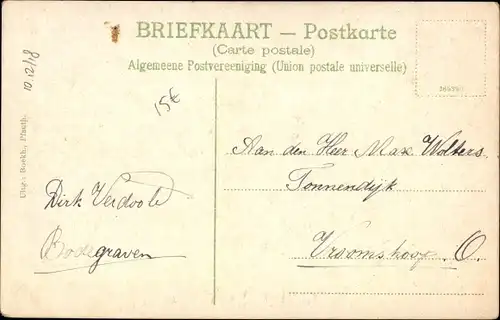 BRIEFKAART — Postkarte
(Carte postale)
Algemeene Postvereeniging (Union postale universelle)
15€
Aan den Heer Max Wolters
Tonnendijk
Vroomshoop O.
Dirk Verdoold
Bodegraven
Uitg.: Boekh.